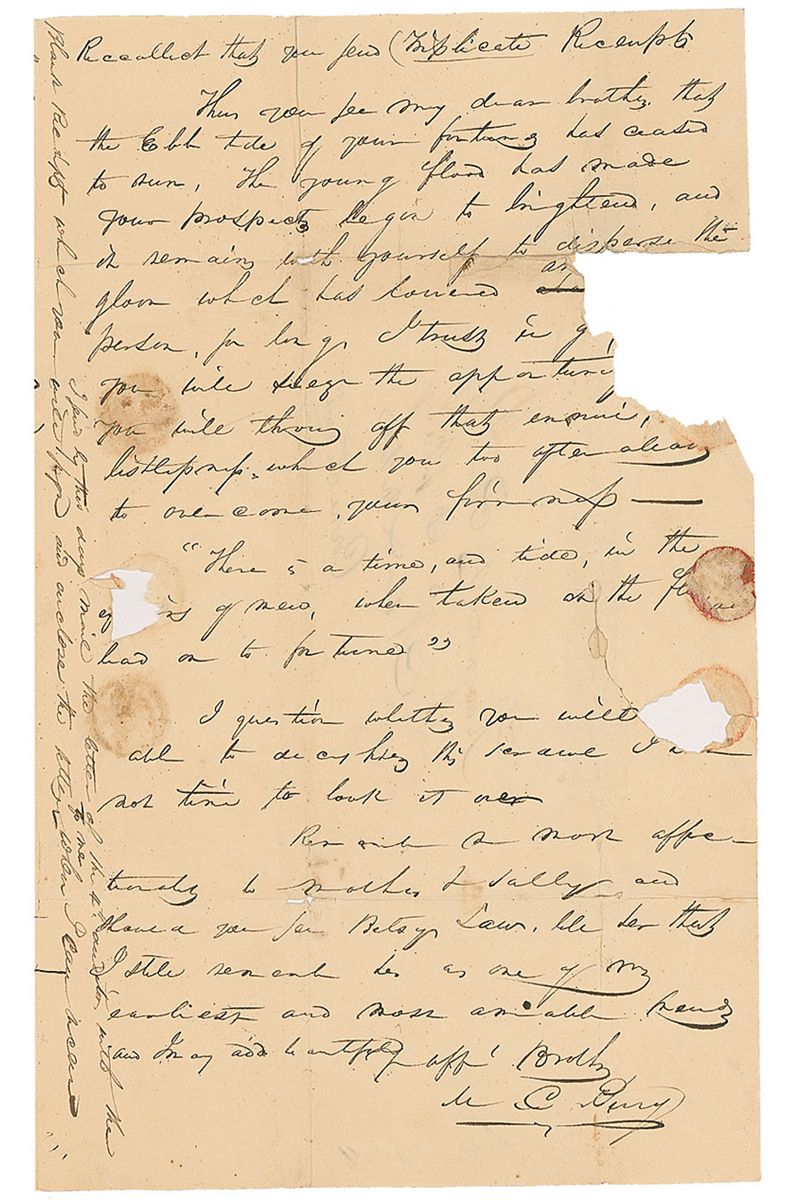 Reccollect that you send (Triplicate Receipts
Thus you see my dear brother, that
the Ebb tide of your fortune has ceased
to run, the young flood has made
your prospects begin to brighten, and
it remains with yourself to disperse the
gloom which has lowered
person, for long, I trust in
you will the
you will throw off that ennui,
listlessness, which you too often allow
to overcome your firmness —
"There is a time, and tide, in the
of men, when taken at the
lead on to fortune"
I question whether you will
able to decypher this scrawl I
not time to look it over
Remember me most affec-
tionately to mother & Sally and
should you see Betsy Law, tell her that
I still remember her as one of my
earliest and most amiable friends
and I may add
aff' Brother
M C Perry
I send by this days mail the letter of the 4' Auditor with the
Blank Receipts which you will sign and enclose the letter to me when I can